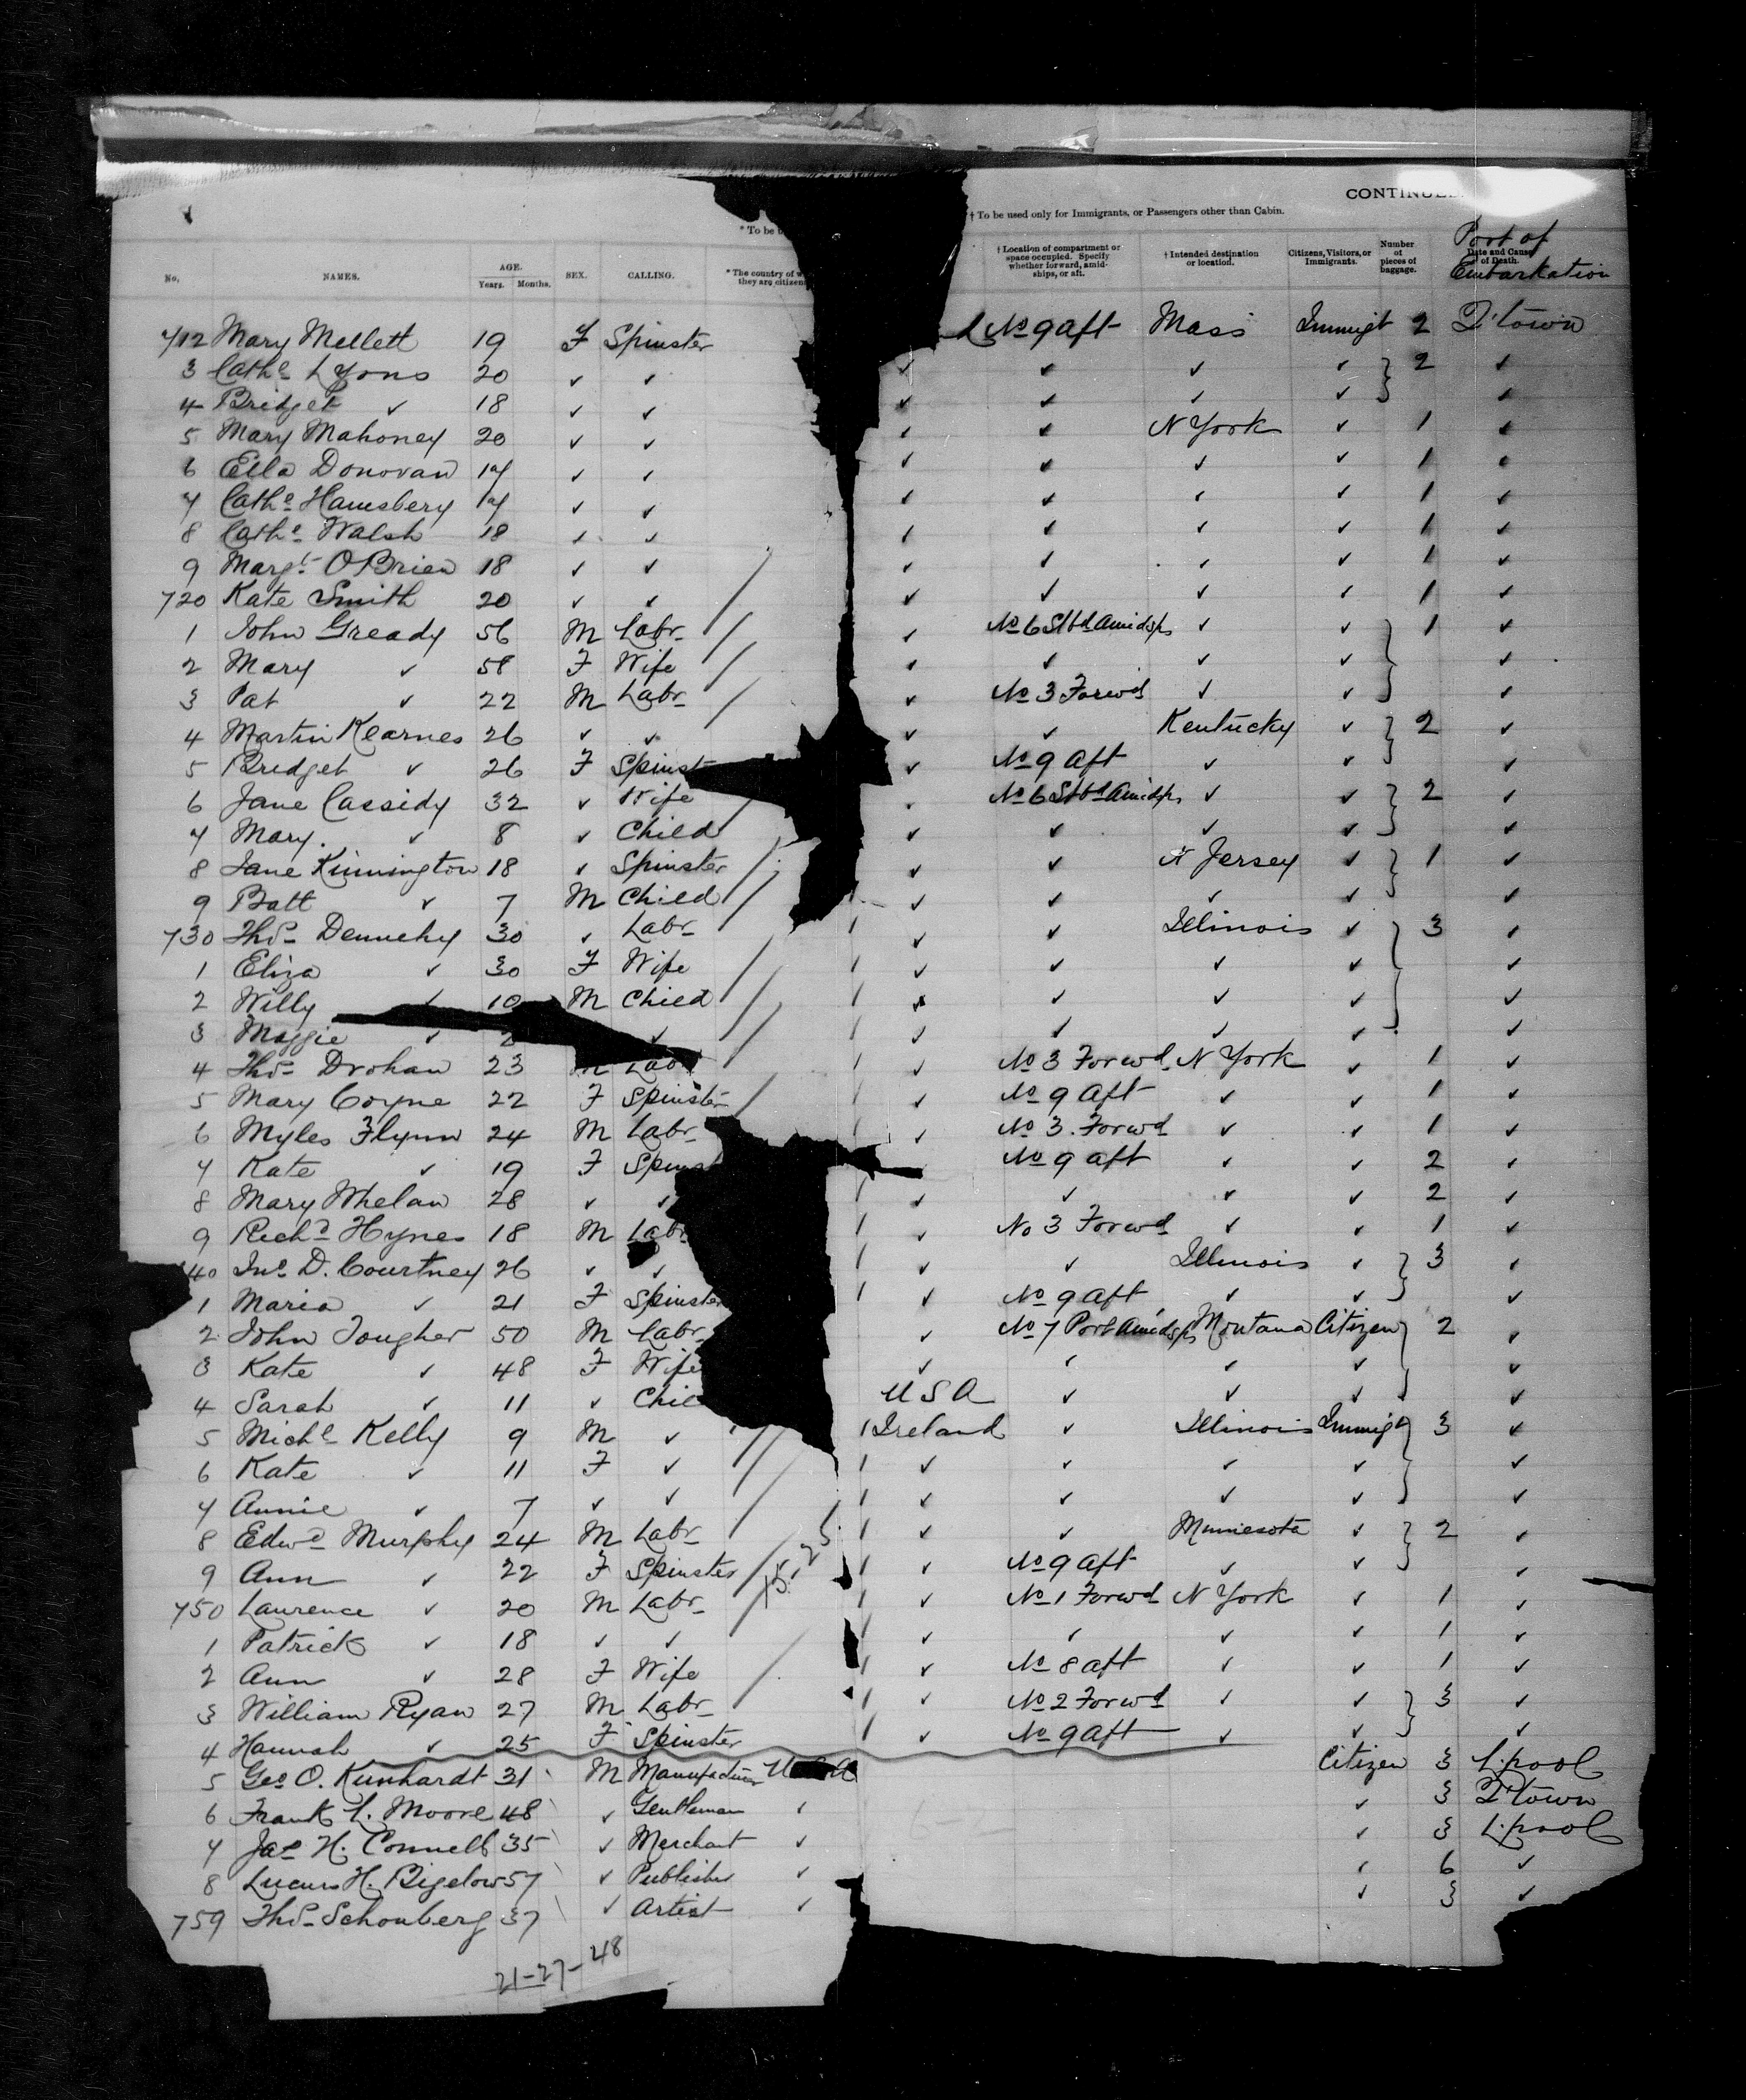 CONTINUE
† To be used only for Immigrants, or Passengers other than Cabin.
* To be
No. NAMES. AGE. Years. Months. SEX. CALLING. * The country of they are citizen † Location of compartment or space occupied. Specify whether forward, amidships, or aft. † Intended destination or location. Citizens, Visitors, or Immigrants. Number of pieces of baggage. Date and Cause of Death. Port of Embarkation
712 Mary Mellett 19 F Spinster No 9 aft Mass Immigt 2 Q'town
3 Cathe Lyons 20 ✓ ✓ ✓ ✓ ✓ ✓ 2 ✓
4 Bridget ✓ 18 ✓ ✓ ✓ ✓ ✓ ✓ ✓
5 Mary Mahoney 20 ✓ ✓ ✓ ✓ N York ✓ 1 ✓
6 Ella Donovan 17 ✓ ✓ ✓ ✓ ✓ ✓ 1 ✓
7 Cathe 17 ✓ ✓ ✓ ✓ ✓ ✓ 1 ✓
8 Cathe Walsh 18 ✓ ✓ ✓ ✓ ✓ ✓ 1 ✓
9 Margt O'Brien 18 ✓ ✓ ✓ ✓ ✓ ✓ 1 ✓
720 Kate Smith 20 ✓ ✓ ✓ ✓ ✓ ✓ 1 ✓
1 John Gready 56 M Labr ✓ No 6 Stbd Amidsps ✓ ✓ 1 ✓
2 Mary ✓ 58 F Wife ✓ ✓ ✓ ✓ ✓
3 Pat ✓ 22 M Labr ✓ No 3 Forwd ✓ ✓ ✓
4 Martin Kearnes 26 ✓ ✓ ✓ ✓ Kentucky ✓ 2 ✓
5 Bridget ✓ 26 F Spinst ✓ No 9 aft ✓ ✓ ✓
6 Jane Cassidy 32 ✓ Wife No 6 Stbd Amidsps ✓ ✓ 2 ✓
7 Mary ✓ 8 ✓ Child ✓ ✓ ✓ ✓ ✓
8 Jane Kinnington 18 ✓ Spinster ✓ ✓ N Jersey ✓ 1 ✓
9 Batt ✓ 7 M Child ✓ ✓ ✓ ✓ ✓
730 Thos Dennehy 30 ✓ Labr 1 ✓ ✓ Illinois ✓ 3 ✓
1 Eliza ✓ 30 F Wife 1 ✓ ✓ ✓ ✓ ✓
2 Willy ✓ 10 M Child 1 ✓ ✓ ✓ ✓ ✓
3 Maggie ✓ 2 ✓ 1 ✓ ✓ ✓ ✓ ✓
4 Thos Drohan 23 M Labr 1 ✓ No 3 Forwd N York ✓ 1 ✓
5 Mary Coyne 22 F Spinster 1 ✓ No 9 aft ✓ ✓ 1 ✓
6 Myles Flynn 24 M Labr 1 ✓ No 3 Forwd ✓ ✓ 1 ✓
7 Kate ✓ 19 F Spinst No 9 aft ✓ ✓ 2 ✓
8 Mary Whelan 28 ✓ ✓ 1 ✓ ✓ ✓ ✓ 2 ✓
9 Richd Hynes 18 M Labr 1 ✓ No 3 Forwd ✓ ✓ 1 ✓
40 Jno D. Courtney 26 ✓ ✓ 1 ✓ ✓ Illinois ✓ 3 ✓
1 Maria ✓ 21 F Spinster 1 ✓ No 9 aft ✓ ✓ ✓
2 John Tougher 50 M Labr ✓ No 7 Port Amidsps Montana Citizen 2 ✓
3 Kate ✓ 48 F Wife ✓ ✓ ✓ ✓ ✓
4 Sarah ✓ 11 ✓ Chil U S A ✓ ✓ ✓ ✓
5 Michl Kelly 9 M ✓ 1 Ireland ✓ Illinois Immigt 3 ✓
6 Kate ✓ 11 F ✓ 1 ✓ ✓ ✓ ✓ ✓
7 Annie ✓ 7 ✓ ✓ 1 ✓ ✓ ✓ ✓ ✓
8 Edwd Murphy 24 M Labr 1 ✓ ✓ Minnesota ✓ 2 ✓
9 Ann ✓ 22 F Spinster 1 ✓ No 9 aft ✓ ✓ ✓
750 Laurence ✓ 20 M Labr 1 ✓ No 1 Forwd N York ✓ 1 ✓
1 Patrick ✓ 18 ✓ ✓ 1 ✓ ✓ ✓ ✓ 1 ✓
2 Ann ✓ 28 F Wife 1 ✓ No 8 aft ✓ ✓ 1 ✓
3 William Ryan 27 M Labr 1 ✓ No 2 Forwd ✓ ✓ 3 ✓
4 Hannah ✓ 25 F Spinster 1 ✓ No 9 aft ✓ ✓ ✓
5 Geo O. Kunhardt 31 M Manufacturer Citizen 3 L.pool
6 Frank L. Moore 48 ✓ Gentleman ✓ ✓ 3 Q'town
7 Jas H. Connell 35 ✓ Merchant ✓ ✓ 3 L.pool
8 H. Bigelow 57 ✓ Publisher ✓ ✓ 6 ✓
759 Thos Schonberg 37 ✓ Artist ✓ ✓ 3 ✓
21-27-48